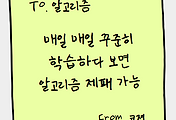 TO. 알고리즘
매일 매일 꾸준히
학습하다 보면
알고리즘 제패 가능
From